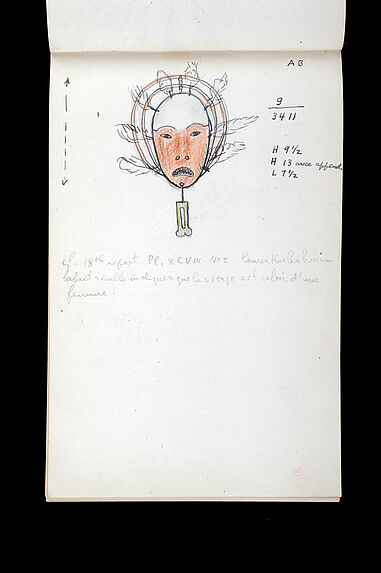 AB
9
3411
H 9 1/2
H 13 avec append.
L 7 1/2
cf. 18th report Pl. XCVIII No 2 lower Kuskokwim
labret semble indiquer que le visage est celui d'une
femme.